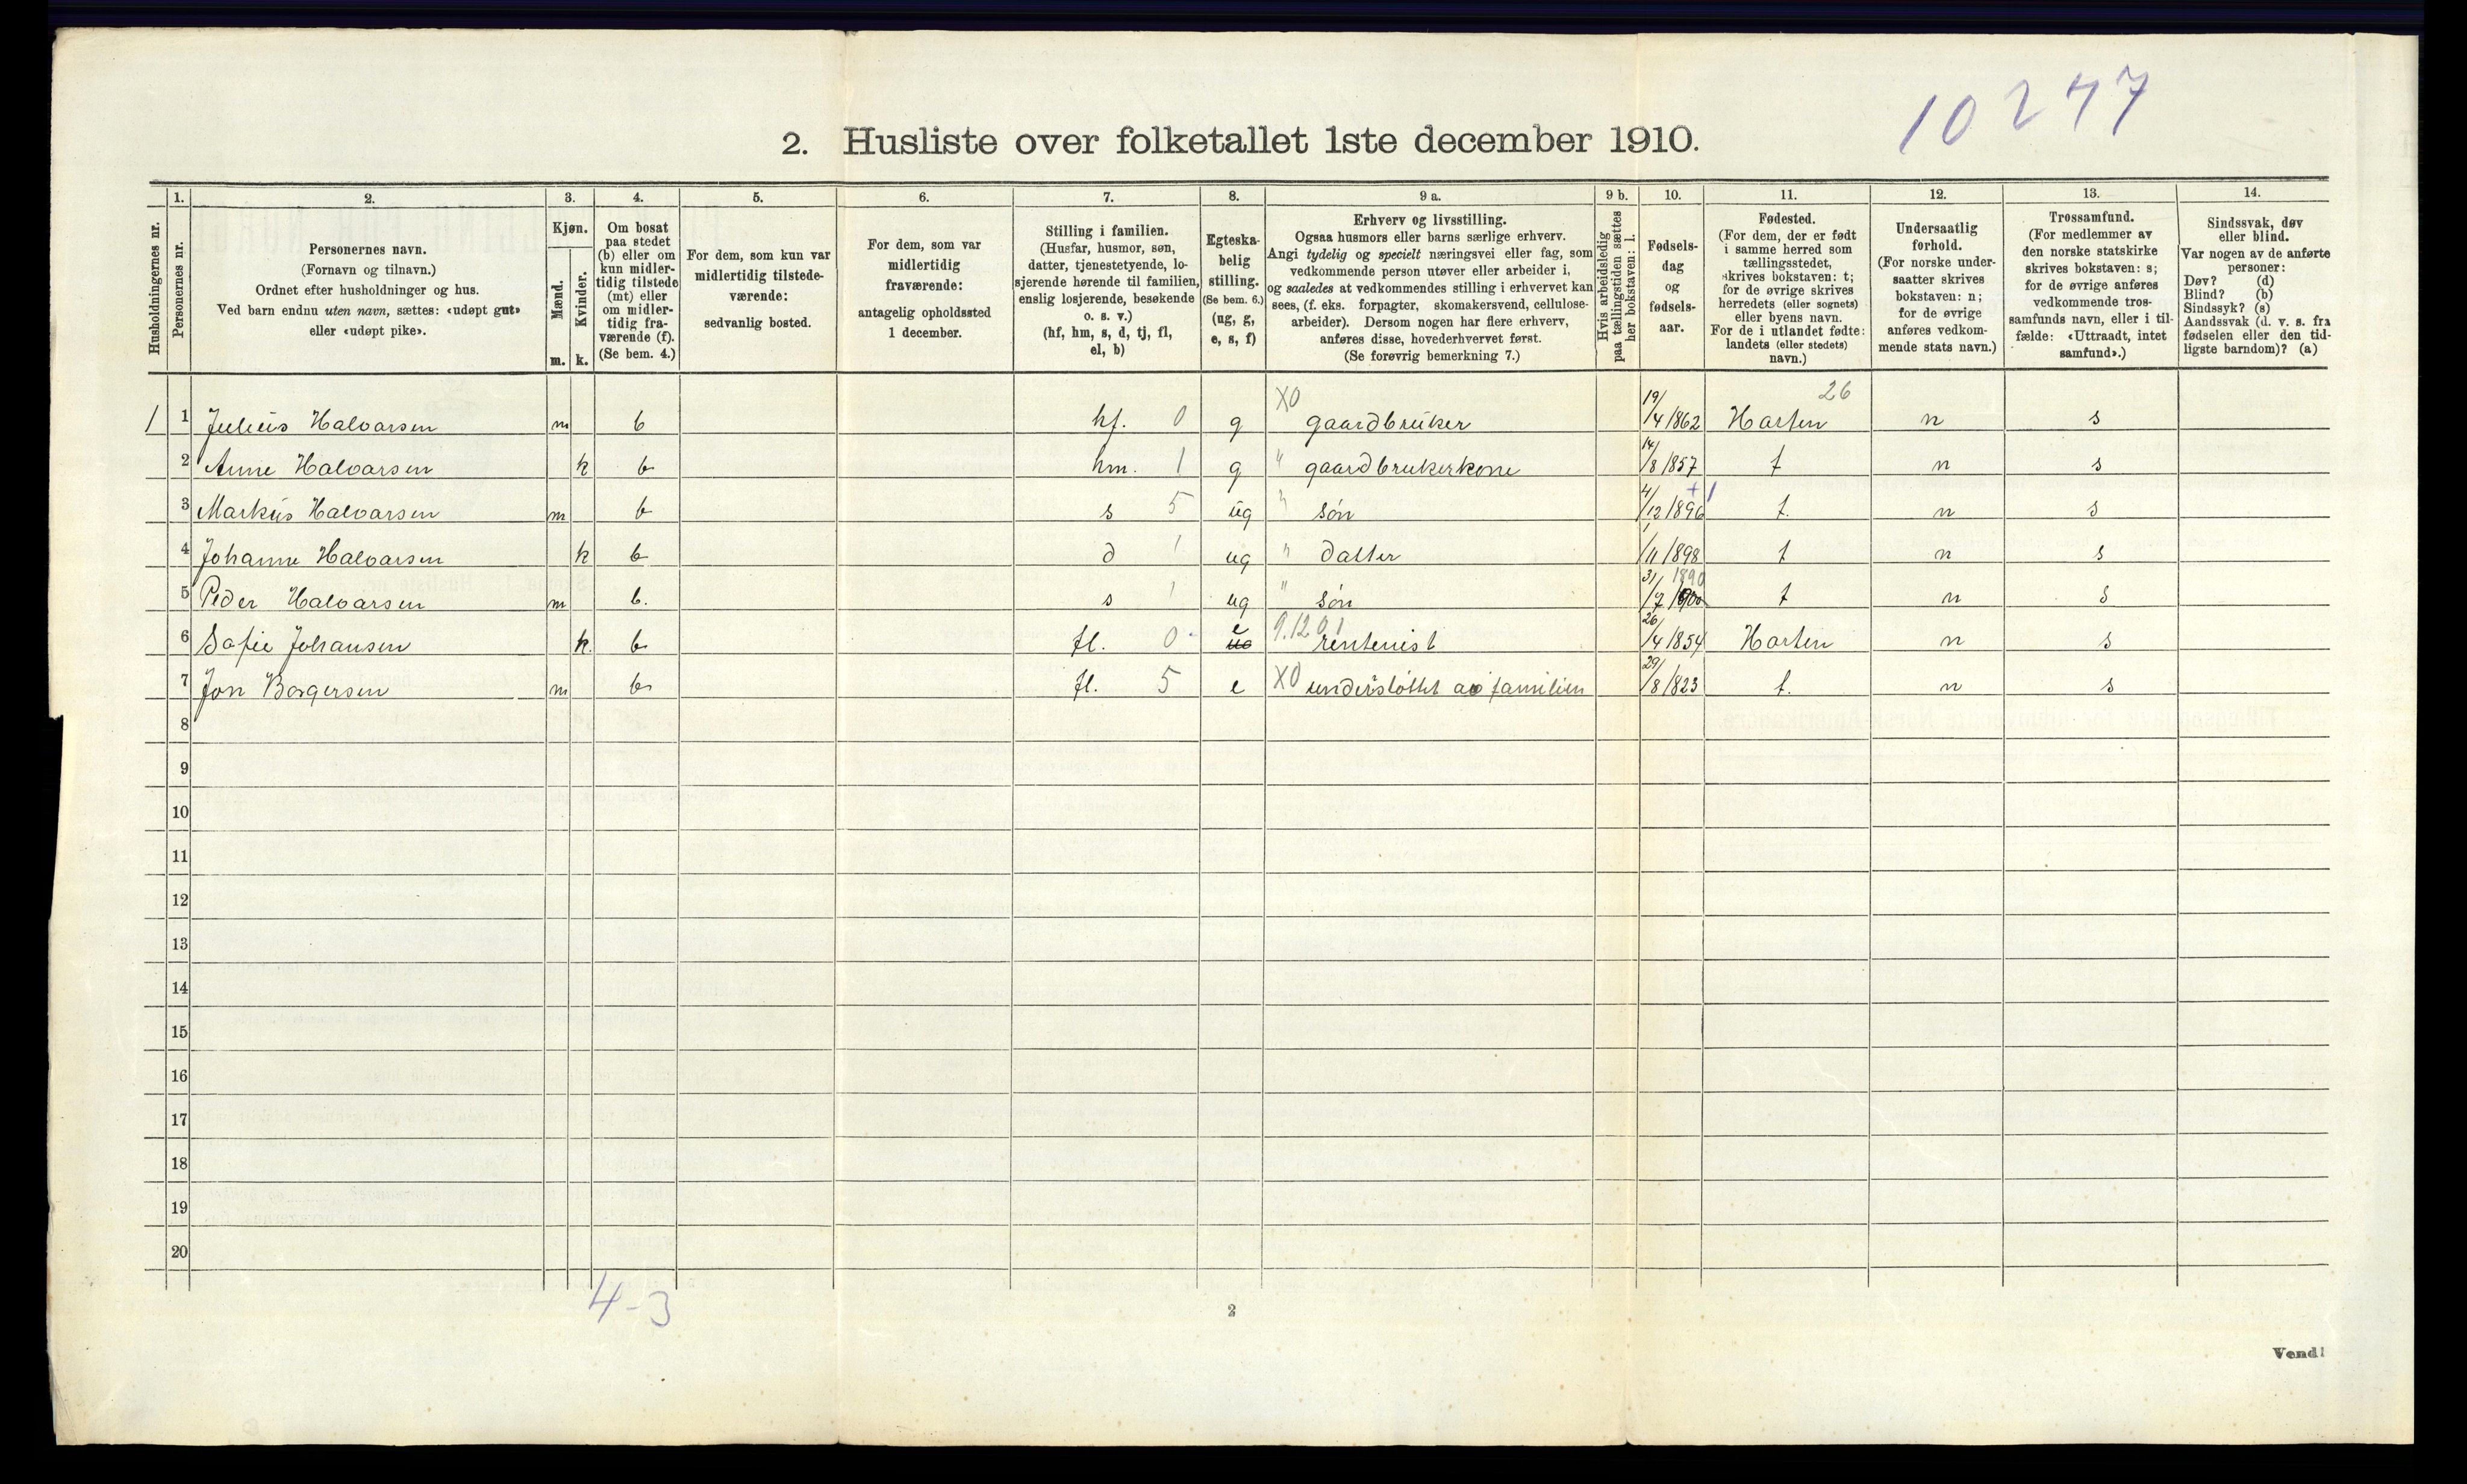 10277
2. Husliste over folketallet 1ste december 1910.
Husholdningernes nr.
1.
Personernes nr.
2.
Personernes navn.
(Fornavn og tilnavn.)
Ordnet efter husholdninger og hus.
Ved barn endnu uten navn, sættes: «udøpt gut»
eller «udøpt pike».
3.
Kjøn.
Mænd.
Kvinder.
m. k.
4.
Om bosat
paa stedet
(b) eller om
kun midler-
tidig tilstede
(mt) eller
om midler-
tidig fra-
værende (f).
(Se bem. 4.)
5.
For dem, som kun var
midlertidig tilstede-
værende:
sedvanlig bosted.
6.
For dem, som var
midlertidig
fraværende:
antagelig opholdssted
1 december.
7.
Stilling i familien.
(Husfar, husmor, søn,
datter, tjenestetyende, lo-
sjerende hørende til familien,
enslig losjerende, besøkende
o. s. v.)
(hf, hm, s, d, tj, fl,
el, b)
8.
Egteska-
belig
stilling.
(Se bem. 6.)
(ug, g,
e, s, f)
9 a.
Erhverv og livsstilling.
Ogsaa husmors eller barns særlige erhverv.
Angi tydelig og specielt næringsvei eller fag, som
vedkommende person utøver eller arbeider i,
og saaledes at vedkommendes stilling i erhvervet kan
sees, (f. eks. forpagter, skomakersvend, cellulose-
arbeider). Dersom nogen har flere erhverv,
anføres disse, hovederhvervet først.
(Se forøvrig bemerkning 7.)
9 b.
Hvis arbeidsledig
paa tællingstiden sættes
her bokstaven: l.
10.
Fødsels-
dag
og
fødsels-
aar.
11.
Fødested.
(For dem, der er født
i samme herred som
tællingsstedet,
skrives bokstaven: t;
for de øvrige skrives
herredets (eller sognets)
eller byens navn.
For de i utlandet fødte:
landets (eller stedets)
navn.)
12.
Undersaatlig
forhold.
(For norske under-
saatter skrives
bokstaven: n;
for de øvrige
anføres vedkom-
mende stats navn.)
13.
Trossamfund.
(For medlemmer av
den norske statskirke
skrives bokstaven: s;
for de øvrige anføres
vedkommende tros-
samfunds navn, eller i til-
fælde: «Uttraadt, intet
samfund».)
14.
Sindssvak, døv
eller blind.
Var nogen av de anførte
personer:
Døv? (d)
Blind? (b)
Sindssyk? (s)
Aandssvak (d. v. s. fra
fødselen eller den tid-
ligste barndom)? (a)
1 1 Julius Halvarsen m b hf. 0 g X0 gaardbruker 19/4 1862 Horten 26 n s
2 Anne Halvarsen k b hm. 1 g " gaardbrukerkone 14/8 1857 t n s
3 Markus Halvarsen m b s 5 ug " søn 4/12 1896 + 1 t. n s
4 Johanne Halvarsen k b d 1 ug " datter 1/11 1898 t n s
5 Peder Halvarsen m b. s 1 ug " søn 31/7 1900 1890 t n s
6 Sofie Johansen k. b fl. 0 e 9.12 01 rentenist 26/4 1854 Horten n s
7 Jon Borgersen m b fl. 5 e X0 understøttet av familien 29/8 1823 t. n s
8
9
10
11
12
13
14
15
16
17
18
19
20
4-3
2
Vend!